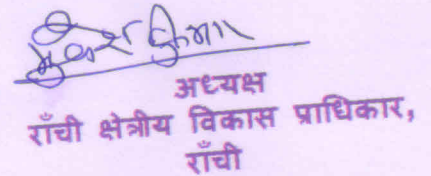 अध्यक्ष
राँची क्षेत्रीय विकास प्राधिकार,
राँची